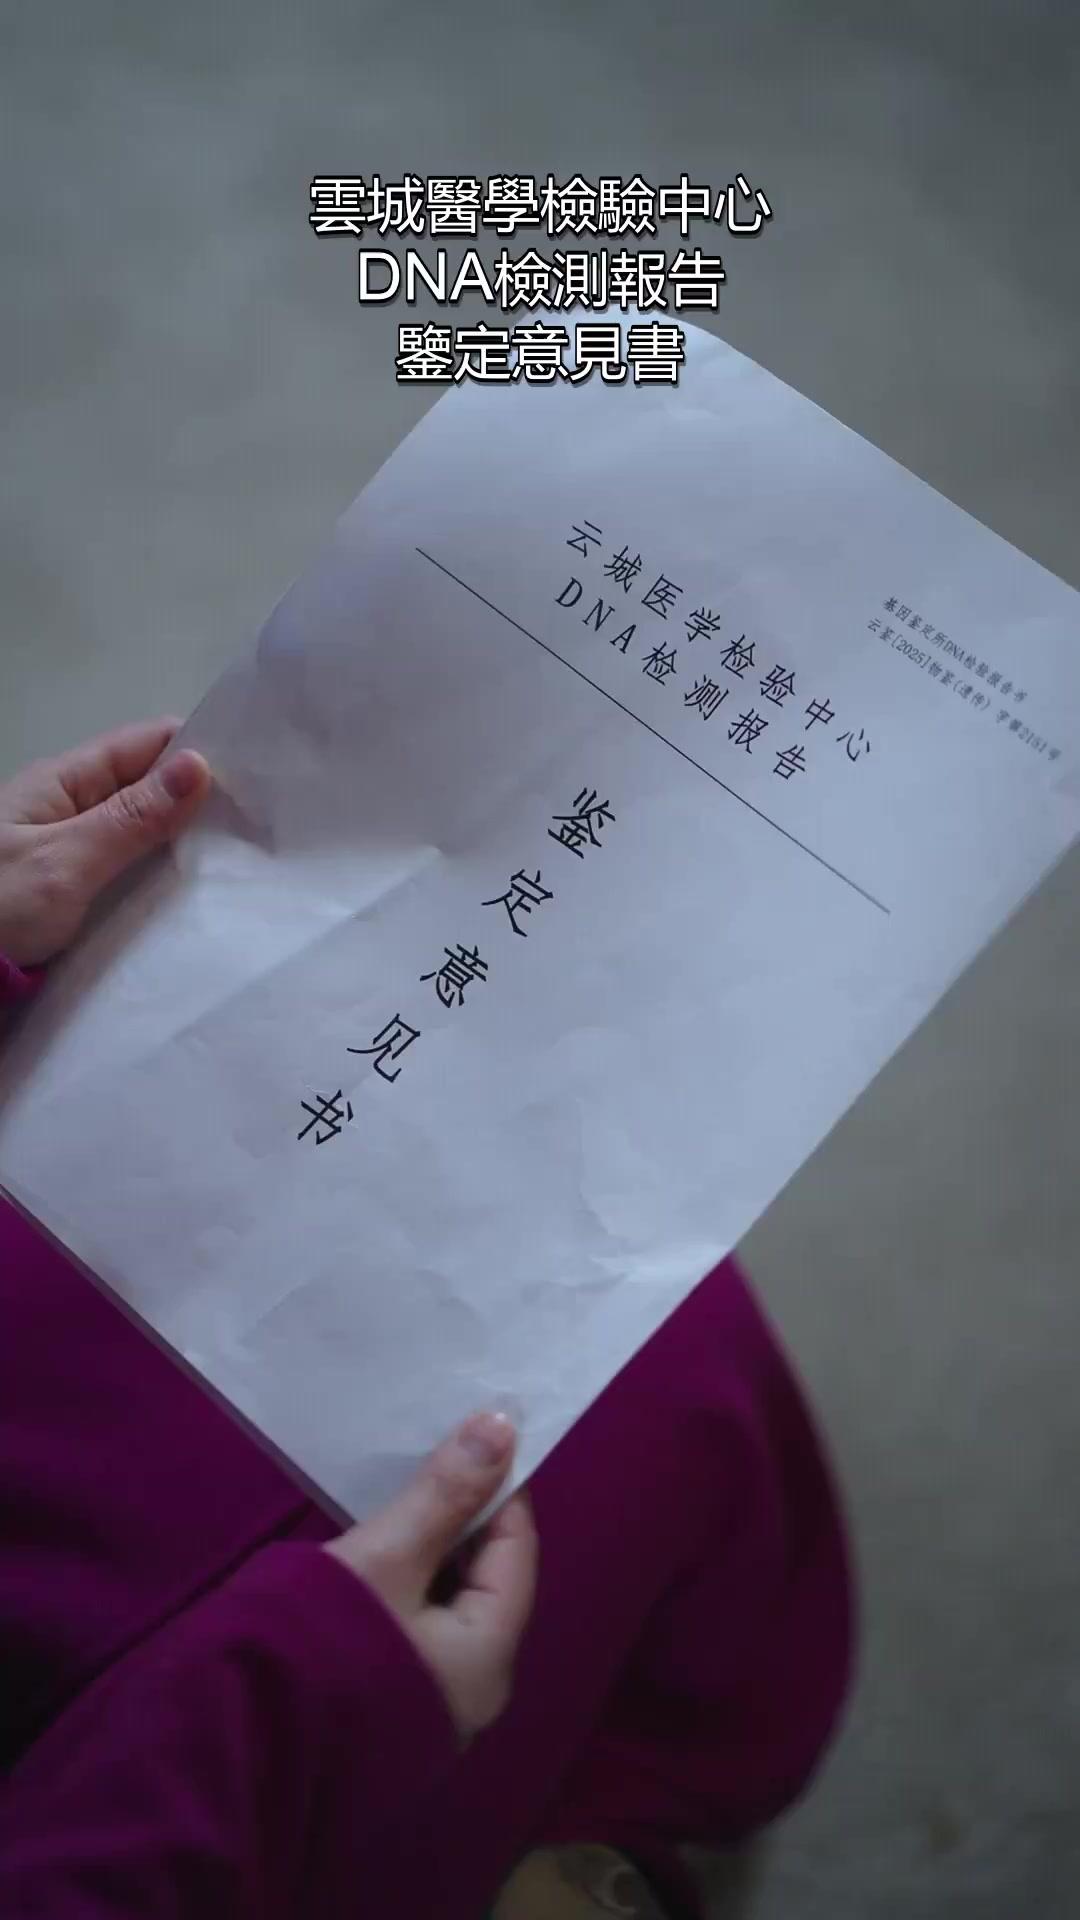 雲城醫學檢驗中心
DNA檢測報告
鑒定意見書
云城医学检验中心
DNA检测报告
基因鉴定所DNA检验报告书
云鉴[2025]物鉴(遗传)字第2151号
鉴定意见书